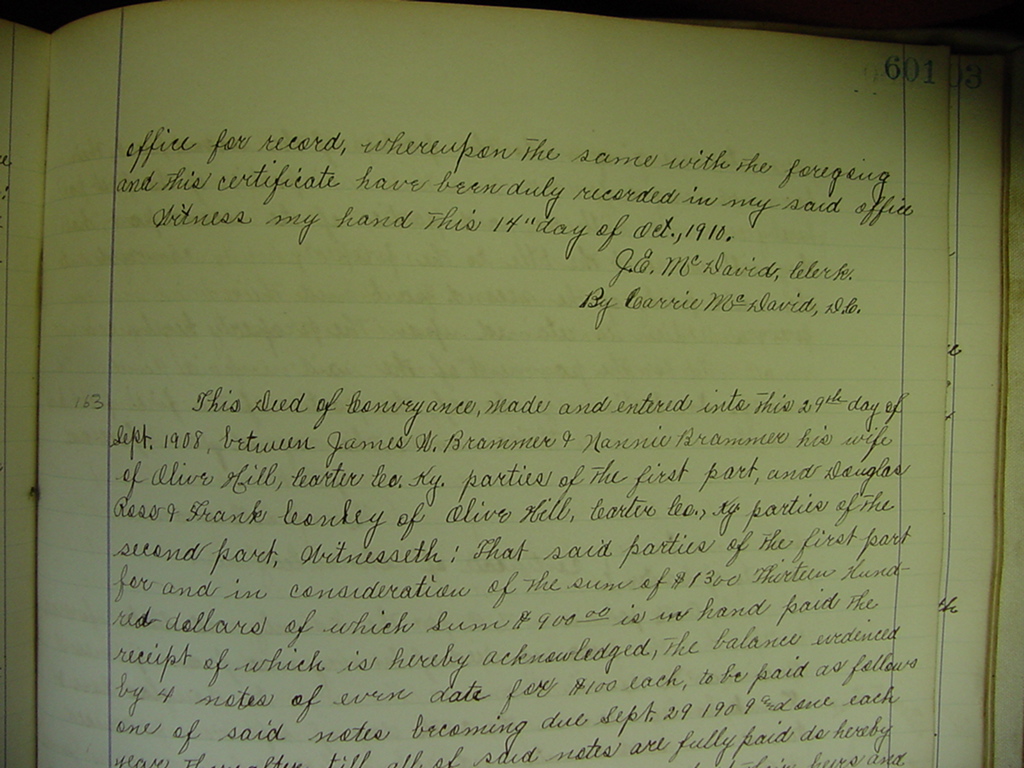 601 03
office for record, whereupon the same with the foregoing
and this certificate have been duly recorded in my said office
Witness my hand this 14" day of Oct., 1910.
J.E. McDavid, Clerk.
By Carrie McDavid, D.C.
163 This Deed of Conveyance, made and entered into this 29th day of
Sept. 1908, between James W. Brammer & Nannie Brammer his wife
of Olive Hill, Carter Co. Ky. parties of the first part, and Douglas
Ross & Frank Conley of Olive Hill, Carter Co., Ky parties of the
second part, Witnesseth: That said parties of the first part
for and in consideration of the sum of $1300 Thirteen Hund-
red dollars of which Sum $900 00 is in hand paid the
receipt of which is hereby acknowledged, the balance evidenced
by 4 notes of even date for $100 each, to be paid as follows
one of said notes becoming due Sept. 29 1909 and one each
year thereafter till all of said notes are fully paid do hereby
heirs and